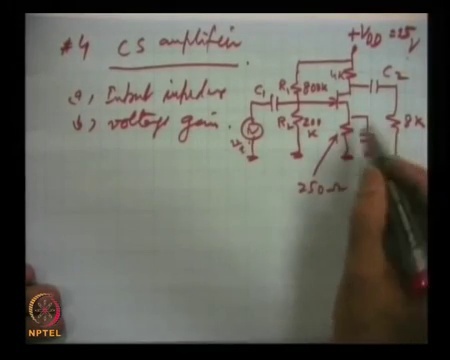 #4 CS amplifier
a, Input impedance
b, voltage gain.
+VDD = 25V
4K
C2
C1
R1
800K
R2
200K
8K
250Ω
NPTEL